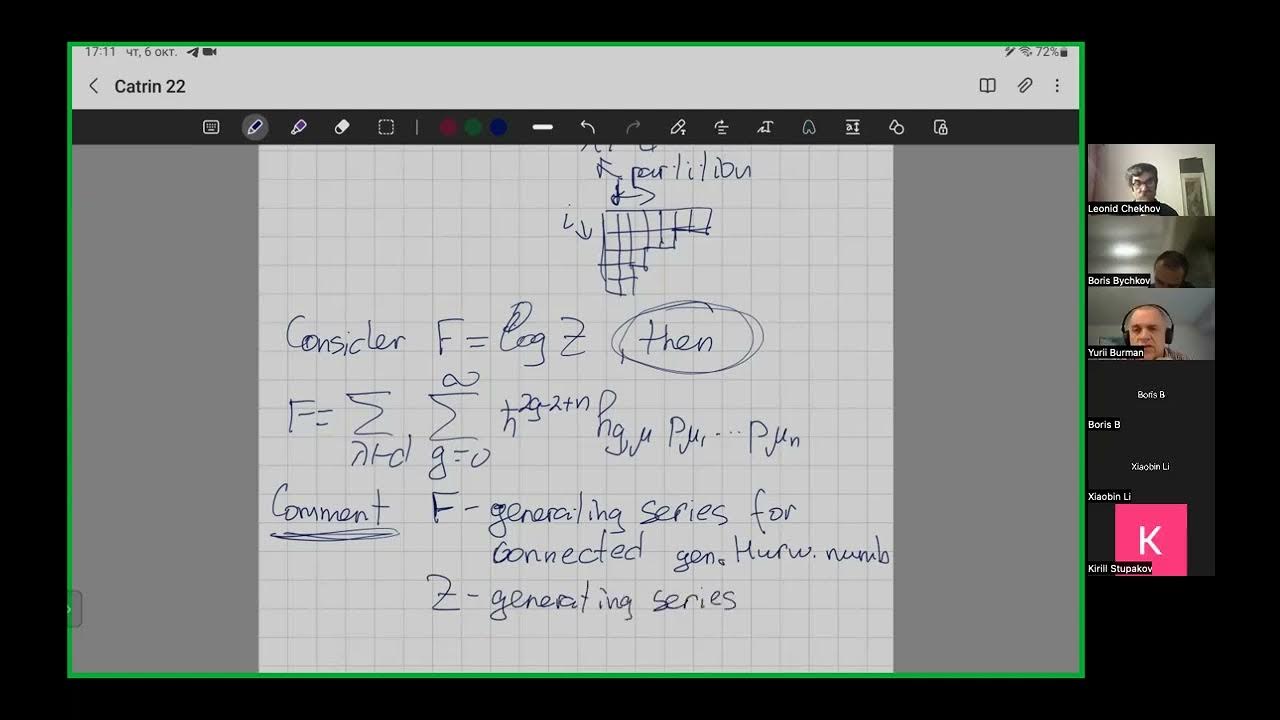 17:11 чт, 6 окт.
72%
Catrin 22
partition
i
Consider F = log Z then
F = ∑_{λ⊢d} ∑_{g=0}^{∞} ħ^{2g-2+n} h_{g,μ} p_{μ₁} ... p_{μₙ}
Comment F - generating series for
connected gen. Hurw. numb
Z - generating series
Leonid Chekhov
Boris Bychkov
Yurii Burman
Boris B
Boris B
Xiaobin Li
Xiaobin Li
K
Kirill Stupakov